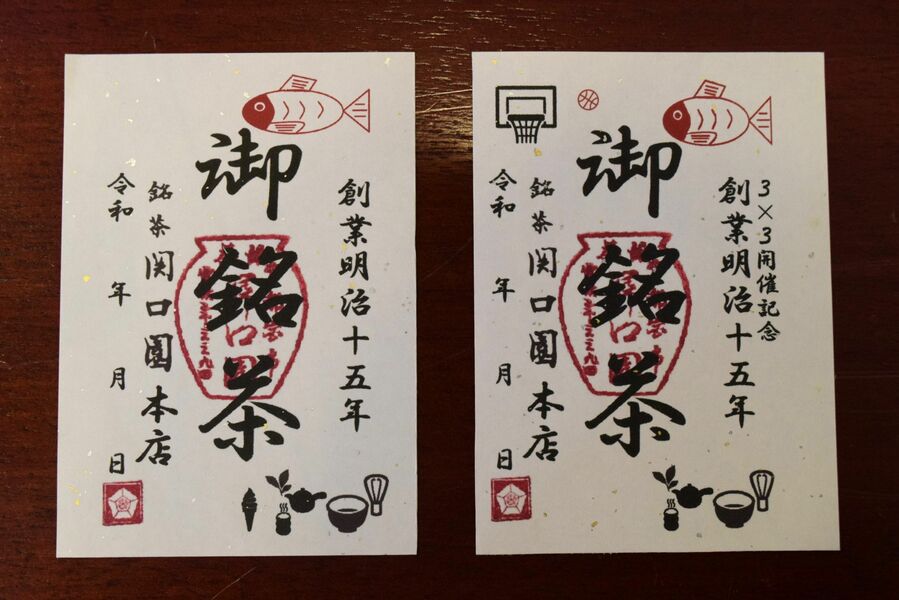 創業明治十五年
御銘茶
銘茶関口園本店
令和 年 月 日
3×3開催記念
創業明治十五年
御銘茶
銘茶関口園本店
令和 年 月 日